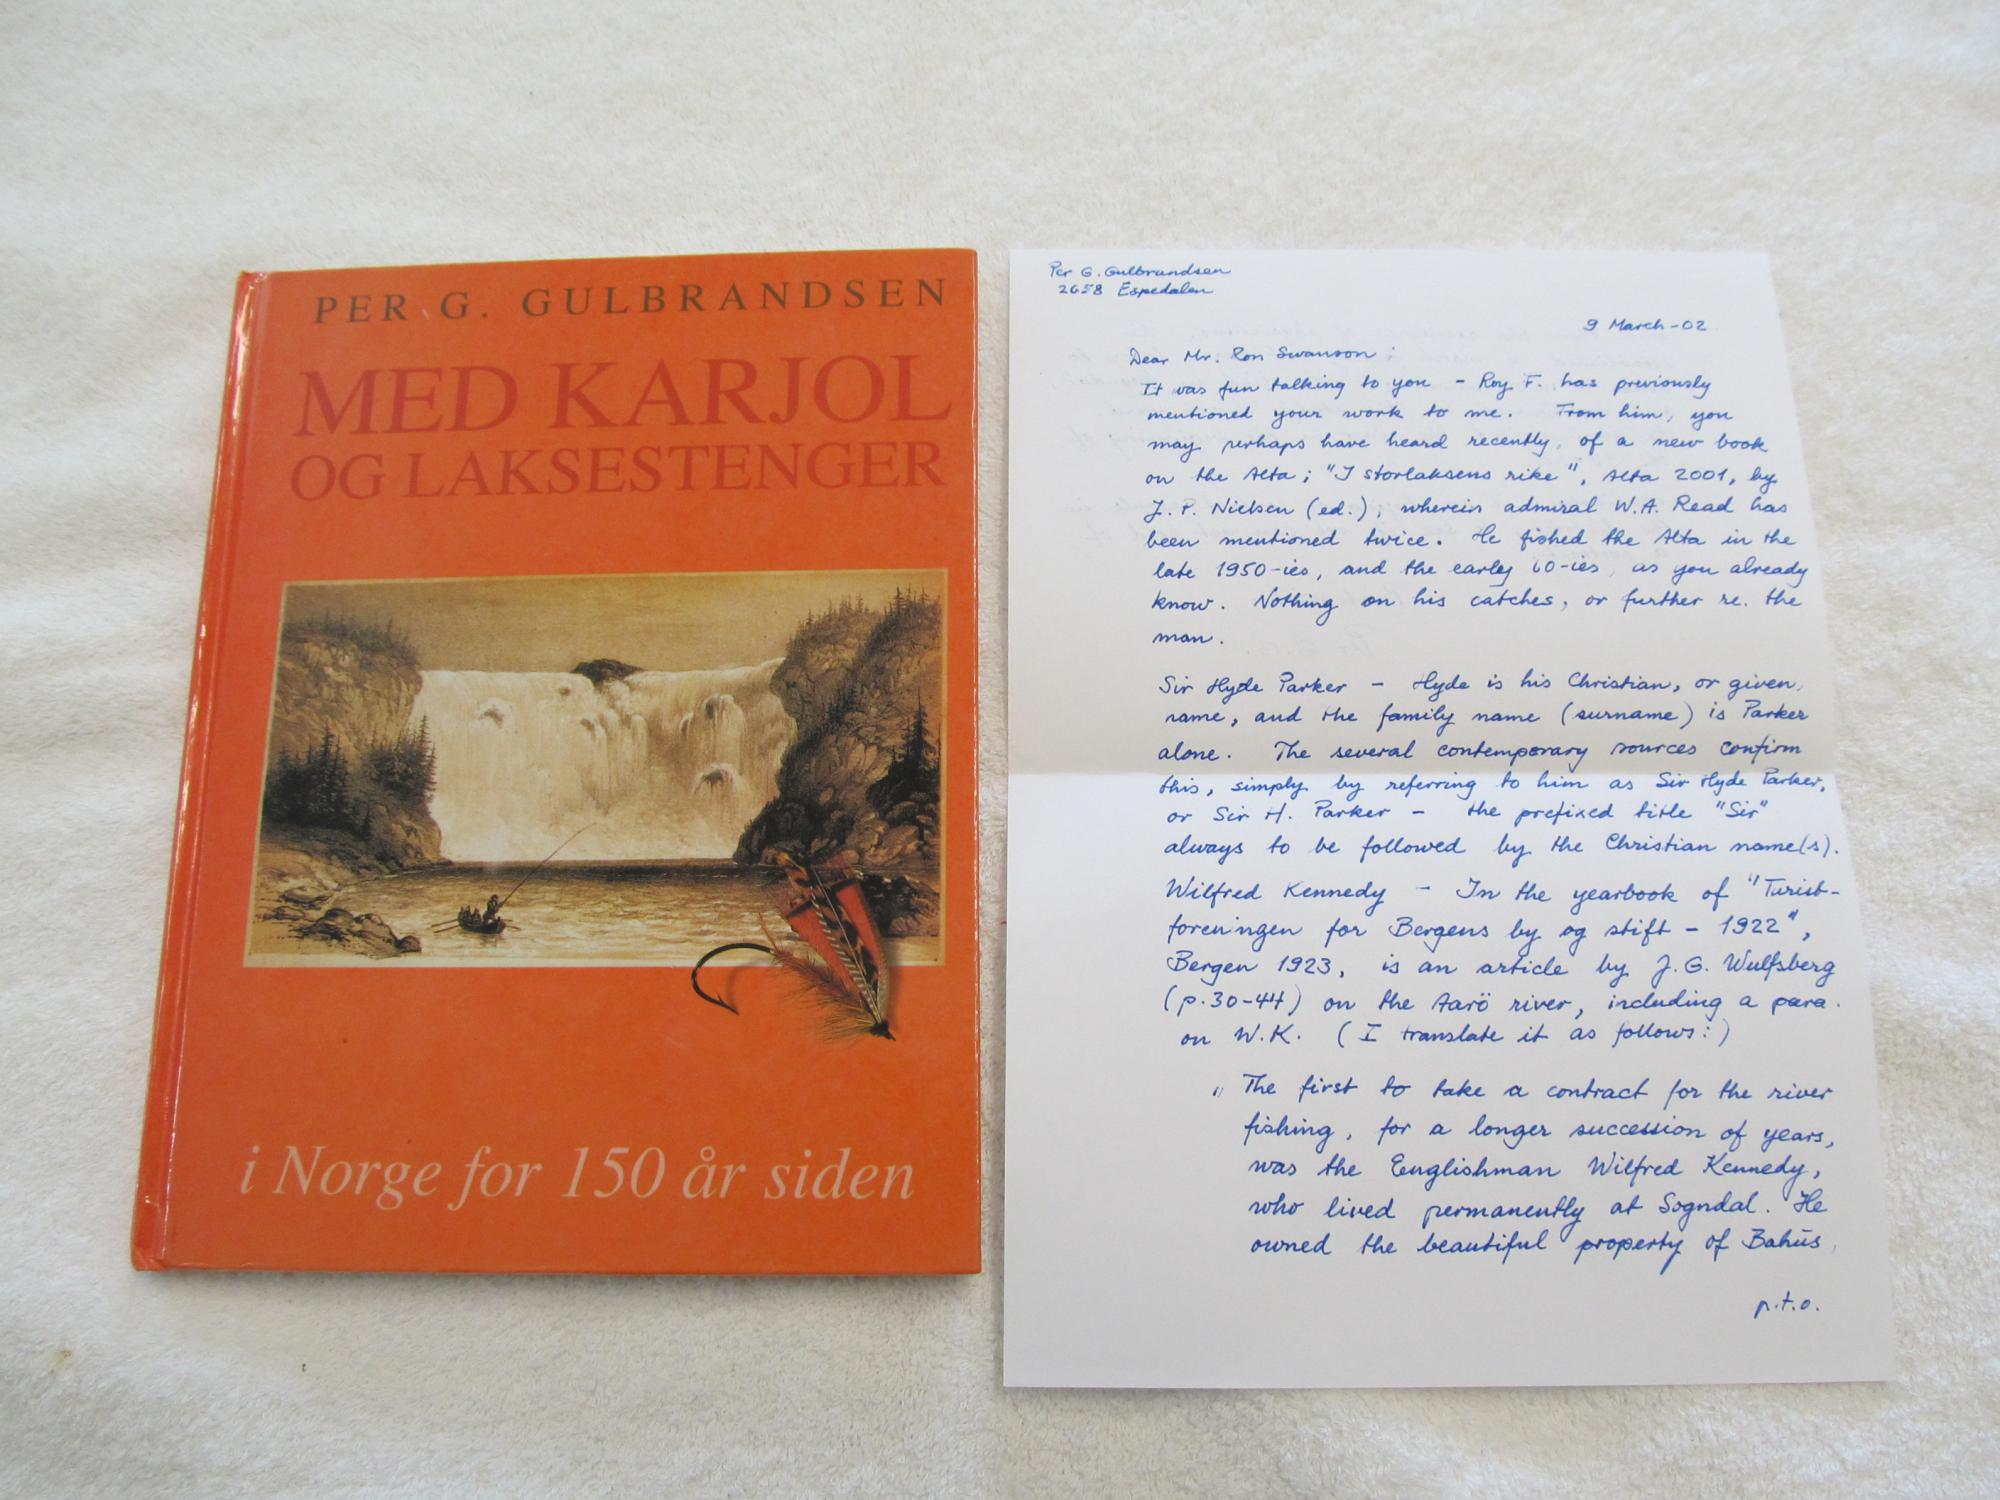 PER G. GULBRANDSEN
MED KARJOL
OG LAKSESTENGER
i Norge for 150 år siden
Per G. Gulbrandsen
2658 Espedalen
9 March -02
Dear Mr. Ron Swanson:
It was fun talking to you – Roy F. has previously
mentioned your work to me. From him, you
may perhaps have heard recently, of a new book
on the Alta; "I storlaksens rike", Alta 2001, by
J. P. Nielsen (ed.), wherein admiral W.A. Read has
been mentioned twice. He fished the Alta in the
late 1950-ies, and the early 60-ies, as you already
know. Nothing on his catches, or further re. the
man.
Sir Hyde Parker – Hyde is his Christian, or given,
name, and the family name (surname) is Parker
alone. The several contemporary sources confirm
this, simply by referring to him as Sir Hyde Parker,
or Sir H. Parker – the prefixed title "Sir"
always to be followed by the Christian name(s).
Wilfred Kennedy – In the yearbook of "Turist-
foreningen for Bergens by og stift – 1922",
Bergen 1923, is an article by J. G. Wulfsberg
(p. 30-44) on the Aarö river, including a para.
on W.K. (I translate it as follows:)
" The first to take a contract for the river
fishing, for a longer succession of years,
was the Englishman Wilfred Kennedy,
who lived permanently at Sogndal. He
owned the beautiful property of Bahūs,
p.t.o.